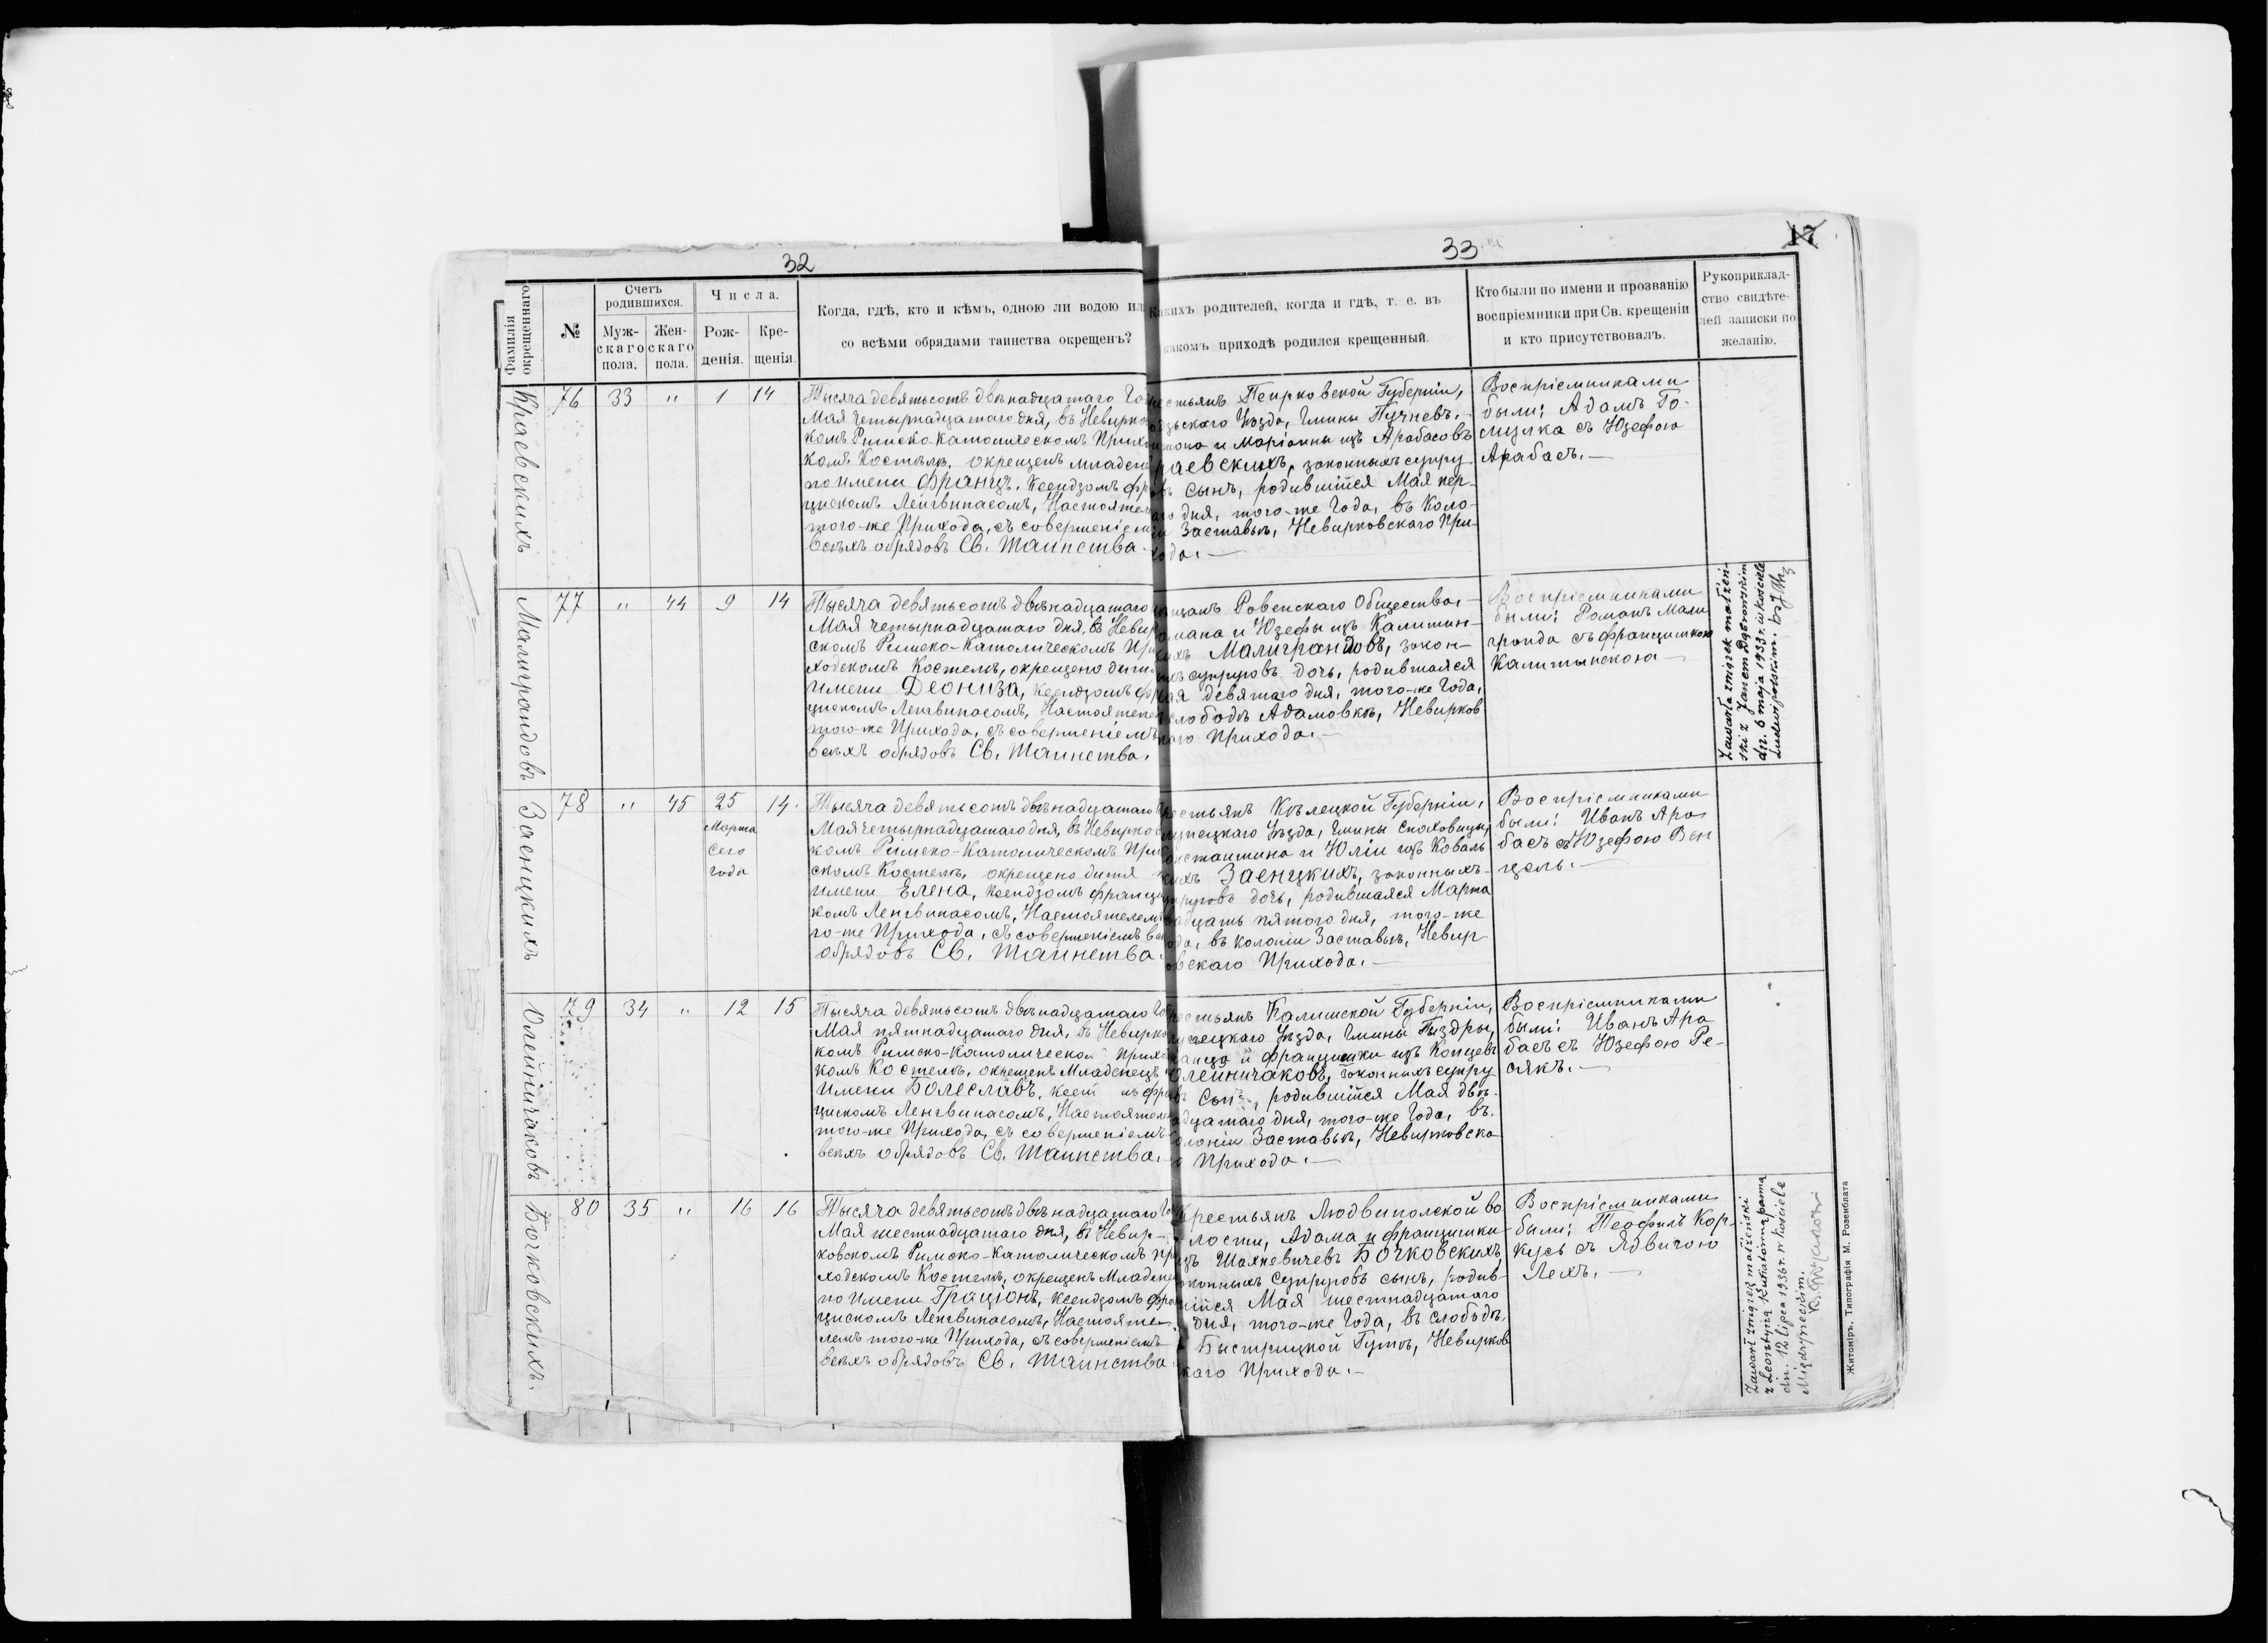 32
33
17
Фамилія окрещеннаго.
№
Счетъ родившихся.
Мужскаго пола.
Женскаго пола.
Числа.
Рожденія.
Крещенія.
Когда, гдѣ, кто и кѣмъ, одною ли водою ил
со всѣми обрядами таинства окрещенъ?
какихъ родителей, когда и гдѣ, т. е. въ
какомъ приходѣ родился крещенный.
Кто были по имени и прозванію
воспріемники при Св. крещеніи
и кто присутствовалъ.
Рукоприклад-
ство свидѣте-
лей записки по
желанію.
Краевскихъ
76 33 " 1 14
Тысяча девятьсотъ двѣнадцатаго Го
Мая четырнадцатаго дня, въ Невирко
комъ Римско-Католическомъ Прихо
комъ Костелѣ, окрещенъ младене
по имени Францъ, Ксендзомъ Фр
цискомъ Ленгвинасомъ, Настояте
того-же Прихода, съ совершеніем
всѣхъ обрядовъ Св. Таинства
рестьянъ Петрковской Губерніи,
одзьскаго Уѣзда, Гмины Пучневъ,
тона и Маріанны изъ Арабасовъ
раевскихъ, законныхъ супру
въ сынъ, родившійся Мая пер-
аго дня, того-же Года, въ Коло-
и Заставье, Невирковскаго При-
хода.—
Воспріемниками
были: Адамъ Го-
мулка съ Юзефою
Арабасъ.—
Малиграндовъ
77 " 44 9 14
Тысяча девятьсотъ двѣнадцатаго
Мая четырнадцатаго дня, въ Невир
скомъ Римско-Католическомъ При
ходскомъ Костелѣ, окрещено дитя
имени Деониза, Ксендзомъ Фр
цискомъ Ленгвинасомъ, Настояте
того-же Прихода, съ совершеніемъ
всѣхъ обрядовъ Св. Таинства.
щанъ Ровенскаго Общества,—
омана и Юзефы изъ Калитин-
ихъ Малиграндовъ, закон-
ыхъ супруговъ дочь, родившаяся
ая девятаго дня, того-же Года,
слободѣ Адамовкѣ, Невирков
каго Прихода.—
Воспріемниками
были: Романъ Мали
гранда съ Францишкою
Калитынскою—
Zawarła związek małżeń-
ski z Janem Dąbrowskim
dn. 6 maja 1933 r. w kościele
Ludwipolskim.
Заенцкихъ
78 " 45 25 14.
Марта
сего
года
Тысяча девятьсотъ двѣнадцатаго
Мая четырнадцатаго дня, въ Невирко
комъ Римско-Католическомъ При
скомъ Костелѣ, окрещено дитя
имени Елена, Ксендзомъ Франци
комъ Ленгвинасомъ, Настоятелем
го-же Прихода, съ совершеніемъ в
обрядовъ Св. Таинства.
рестьянъ Кѣлецкой Губерніи,
Уѣзда, Гмины
онстантина и Юліи изъ Коваль
кихъ Заенцкихъ, законныхъ-
упруговъ дочь, родившаяся Марта
вадцать пятого дня, того-же
ода, въ колоніи Заставье, Невир
овскаго Прихода.—
Воспріемниками
были: Иванъ Ара
басъ съ Юзефою Вен
цель.—
Олейничаковъ
79 34 " 12 15
Тысяча девятьсотъ двѣнадцатаго Го
Мая пятнадцатаго дня, въ Невирко
комъ Римско-Католическом Прихо
комъ Костелѣ, окрещенъ Младенецъ
имени Болеславъ, Ксен фра
цискомъ Ленгвинасомъ, Настояте
того-же Прихода, съ совершеніемъ
всѣхъ обрядовъ Св. Таинства.
рестьянъ Калишской Губерніи,
Уѣзда, Гмины Пыздры,
ранца и Францишки изъ Копцевъ
Олейничаковъ, законныхъ супру
въ Сын, родившійся Мая двѣ-
адцатаго дня, того-же Года, въ
олоніи Заставье, Невирковска
о Прихода.—
Воспріемниками
были: Иванъ Ара
басъ съ Юзефою Ре-
сякъ.—
Бочковскихъ.
80 35 " 16 16
Тысяча девятьсотъ двѣнадцатаго Го
Мая шестнадцатаго дня, въ Невир-
ковскомъ Римско-Католическомъ Пр
ходскомъ Костелѣ, окрещенъ Младене
по имени Граціонъ, Ксендзомъ Фра
цискомъ Ленгвинасомъ, Настояте-
лемъ того-же Прихода, съ совершеніемъ
всѣхъ обрядовъ Св. Таинства.
Крестьянъ Людвипольской во
лости, Адама и Францишки
изъ Шахневичевъ Бочковскихъ,
аконныхъ Супруговъ сынъ, родив-
шійся Мая шестнадцатаго
дня, того-же Года, въ слободѣ
Быстрицкой Гутѣ, Невирков
каго Прихода.—
Воспріемниками
были: Теофилъ Кор-
кусь съ Ядвигою
Лехъ.—
Zawarł związek małżeński
z Leontyną panną
dn. 12 lipca 1936 r. w kościele
Międzyrzeckim.
Житоміръ, Типографія М. Розенблата